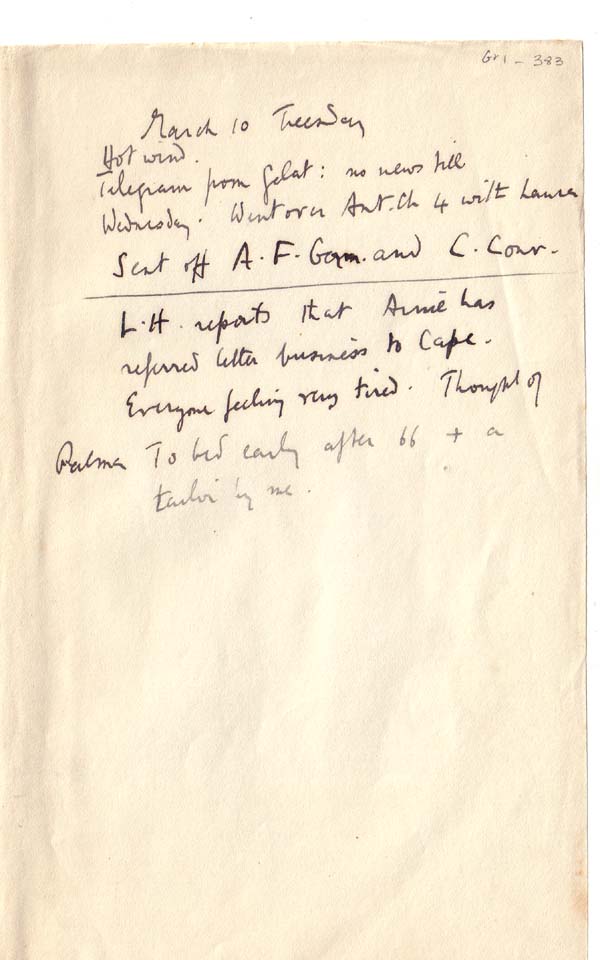 Gr1 - 383
March 10 Tuesday
Hot wind.
Telegram from Gelat: no news till
Wednesday. Went over Ant. Ch 4 with Laura
Sent off A. F. Germ. and C. Conr.
L.H. reports that Annie has
referred letter business to Cape.
Everyone feeling very tired. Thought of
Palma To bed early after 66 + a
by me.